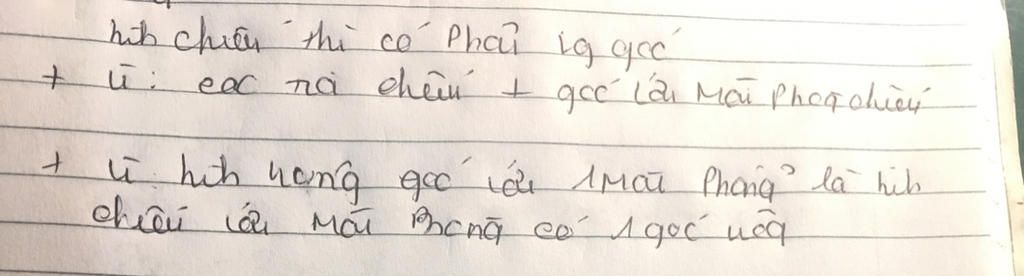 hìh chiếu thì có Phải là góc
+ Vì: các tia chiếu ⊥ góc với Mặt Phẳg chiếu
+ Vì hìh vuông góc với 1 Mặt Phẳng là hìh
chiếu với Mặt Phẳng có 1 góc vuôg